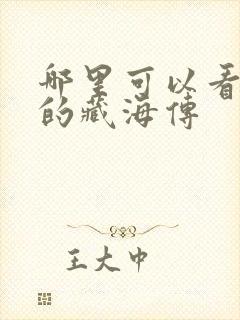 哪里可以看
的藏海傳
王大中